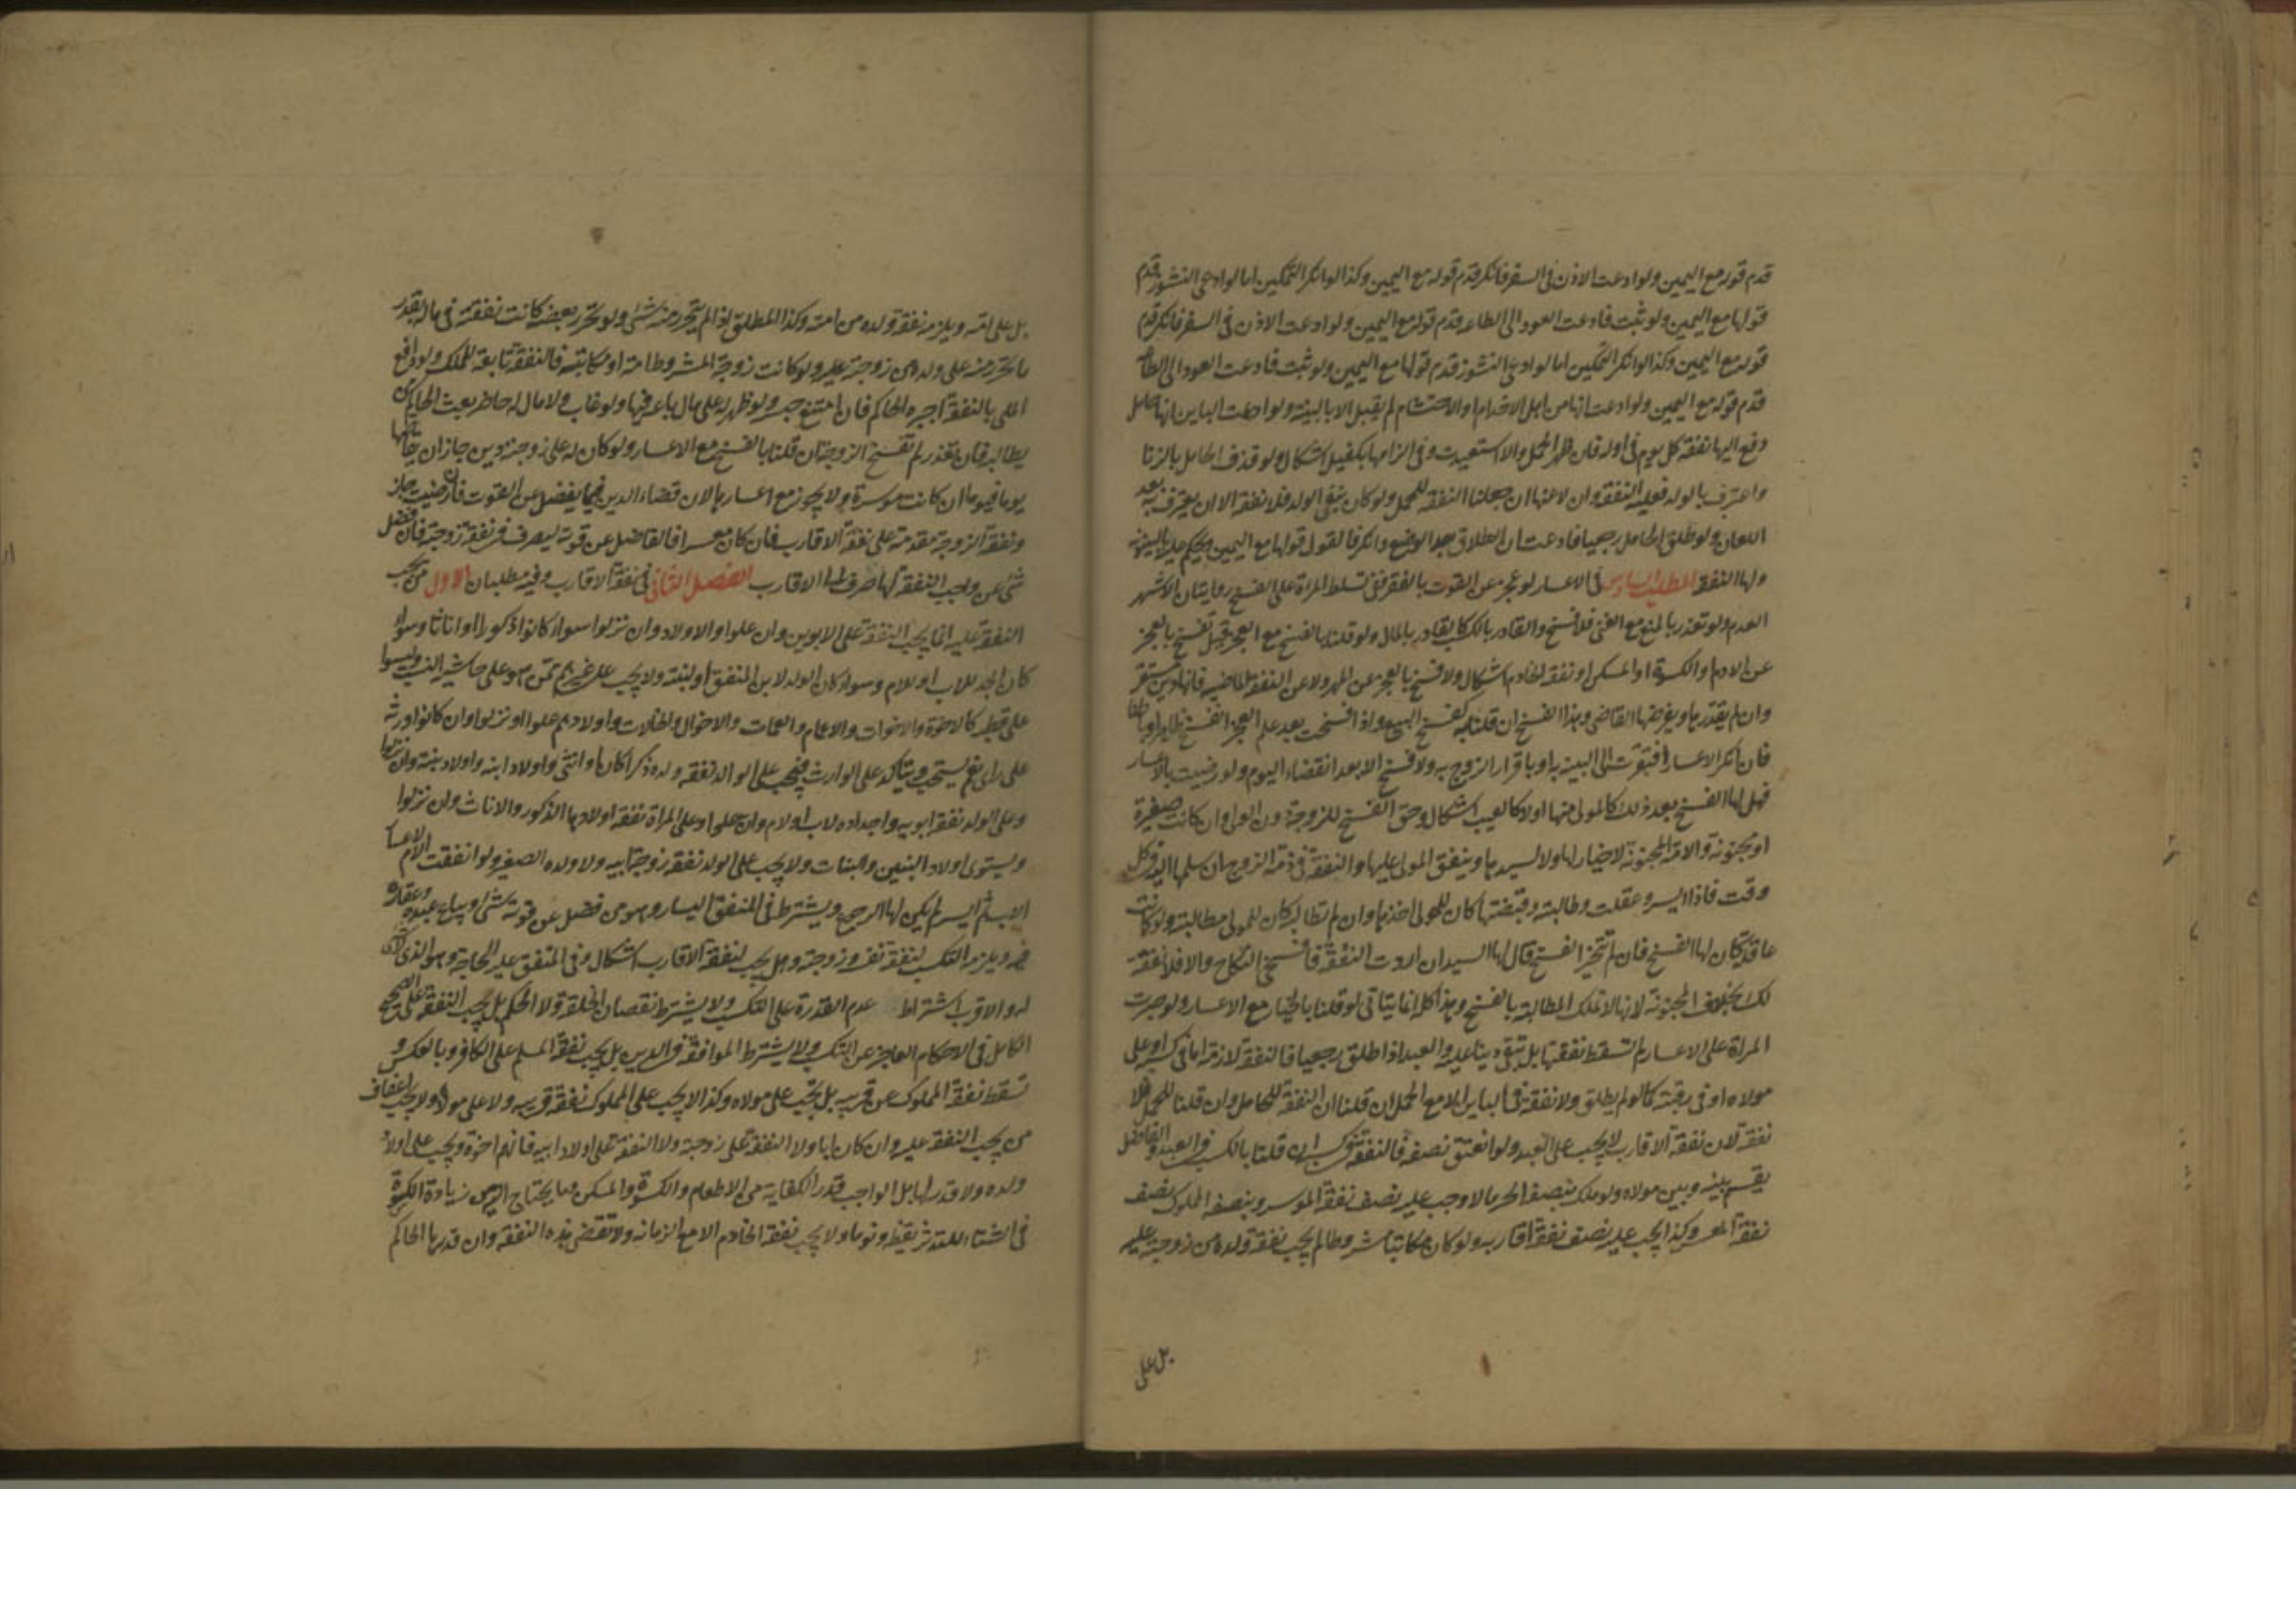 قدم قوله مع اليمين ولو ادعت الاذن فى السفر فانكر قدم قوله مع اليمين وكذا لو انكر التمكين اما لو ادعى النشوز قدم
قولها مع اليمين ولو ثبت فادعت العود الى الطاعه قدم قوله مع اليمين ولو ادعت الاذن فى السفر فانكر قدم
قوله مع اليمين وكذا لو انكر التمكين اما لو ادعى النشوز قدم قولها مع اليمين ولو ثبت فادعت العود الى الطاعه
قدم قوله مع اليمين ولو ادعت انها من اهل الاخدام او الاحتشام لم يقبل الا بالبينة ولو ادعت الباين انها حامل
دفع اليها نفقة كل يوم فى اوله فان ظهر الحمل والا استعيدت وفى الزامها بكفيل اشكال ولو قذف الحامل بالزنا
واعترف بالولد فعليه النفقة وان لاعنها ان جعلنا النفقه للحمل ولو كان بنفى الولد فلا نفقة الا ان يعترف به بعد
اللعان ولو طلق الحامل رجعيا فادعت ان الطلاق بعد الوضع وانكر فالقول قولها مع اليمين ويحكم عليه بالبينونه
ولها النفقة المطلب السادس فى الاعسار لو عجز عن القوت بالفقر ففى تسلط المراة على الفسخ روايتان الاشهر
العدم ولو تعذر بالمنع مع الغنى فلا فسخ والقادر بالكسب كالقادر بالمال ولو قلنا بالفسخ مع العجز قيل تفسخ بالعجز
عن الادام والكسوة او المسكن او نفقة الخادم اشكال ولا فسخ بالعجز عن المهر ولا عن النفقة الماضيه فانها دين مستقر
وان لم يقدرها ويفرضها القاضى وهذا الفسخ ان قلنا به كفسخ البيع واذا فسخت بعد علم العجز انفسخ ظاهرا وباطنا
فان انكر الاعسار افتقرت الى البينه به او باقرار الزوج به ولا فسخ الا بعد انقضاء اليوم ولو رضيت بالاعسار
فهل لها الفسخ بعد ذلك كالمولى منها او لا كالعيب اشكال وحق الفسخ للزوجة دون الولى وان كانت صغيرة
او مجنونه والامة المجنونة لا خيار لها ولا لسيدها وينفق المولى عليها والنفقة فى ذمة الزوج ان سلمها اليه فى كل
وقت فاذا ايسر وعقلت وطالبته وقبضتها كان للمولى اخذها وان لم تطالبه كان للمولى مطالبته ولو كانت
عاقلة كان لها الفسخ فان لم تختر الفسخ قال لها السيد ان اردت النفقة فافسخى النكاح والا فلا نفقة
لك بخلاف المجنونة لانها لا تملك المطالبة بالفسخ وهذا كله انما يتاتى لو قلنا بالخيار مع الاعسار ولو صبرت
المراة على الاعسار لم تسقط نفقتها بل تبقى دينا عليه والعبد اذا طلق رجعيا فالنفقة لازمة اما فى كسبه او على
مولاه او فى رقبته كما لو لم يطلق ولا نفقة فى الباين الا مع الحمل ان قلنا ان النفقة للحامل وان قلنا للحمل فلا
نفقة لان نفقة الاقارب لا يجب على العبد ولو انعتق نصفه فالنفقة فى كسبه ان قلنا بالكسب فى العبد والفاضل
يقسم بينه وبين مولاه ولو ملك بنصفه الحر مالا وجب عليه نصف نفقة الموسر وبنصفه المملوك نصف
نفقة المعسر وكذا يجب عليه نصف نفقة اقاربه ولو كان مكاتبا مشروطا لم يجب نفقة ولده من زوجته عليه
بل على
بل على امه ويلزمه نفقة ولده من امته وكذا المطلق اذا لم يتحرر منه شىء ولو تحرر بعضه كانت نفقته فى ماله بقدر
ما تحرر منه على ولده من زوجته عليه ولو كانت زوجة المشروط امته او مكاتبته فالنفقة تابعة للملك ولو دافع
الملى بالنفقة اجبره الحاكم فان امتنع حبسه ولو ظهر له على مال باعه فيها ولو غاب ولا مال له حاضر بعث الحاكم من
يطالبه فان تعذر لم تفسخ الزوجة ان قلنا بالفسخ مع الاعسار ولو كان له على زوجته دين جاز ان يقاصها
يوما فيوما ان كانت موسرة ولا يجوز مع اعسارها لان قضاء الدين فيما يفضل عن القوت فان رضيت جاز
ونفقة الزوجة مقدمة على نفقة الاقارب فان كان معسرا فالفاضل عن قوته ليصرف فى نفقة زوجته فان فضل
شىء عن واجب النفقة لها صرف الى الاقارب الفصل الثانى فى نفقة الاقارب وفيه مطلبان الاول من يجب
النفقة عليه انما يجب النفقة على الابوين وان علوا والاولاد وان نزلوا سواء كانوا ذكورا او اناثا وسواء
كان الجد للاب او للام وسواء كان الولد لابن المنفق او لبنته ولا يجب على غيرهم ممن هو على حاشية النسب وليسوا
على قطبه كالاخوة والاخوات والاعمام والعمات والاخوال والخالات واولادهم علوا او نزلوا وان كانوا ورثة
على راى نعم يستحب ويتاكد على الوارث فيجب على الوالد نفقة ولده ذكرا كان او انثى واولاد ابنه واولاد بنته وان نزلوا
وعلى الولد نفقة ابويه واجداده لاب او لام وان علوا وعلى المراة نفقة اولادها الذكور والاناث وان نزلوا
ويستوى اولاد البنين والبنات ولا يجب على الولد نفقة زوجة ابيه ولا ولده الصغير ولو انفقت الام لاعسار
الاب ثم ايسر لم يكن لها الرجوع ويشترط فى المنفق اليسار وهو من فضل عن قوته شىء ويباع عبده وعقاره
فيه ويلزمه التكسب لنفقة نفسه وزوجته وهل يجب لنفقة الاقارب اشكال وفى المنفق عليه الحاجة وهو الذى لا شى
له والاقرب اشتراط عدم القدرة على التكسب ولا يشترط نقصان الخلقة ولا الحكم بل يجب النفقة على الصحيح
الكامل فى الاحكام العاجز عن التكسب ولا يشترط الموافقة فى الدين بل يجب نفقة المسلم على الكافر وبالعكس و
تسقط نفقة المملوك عن قريبه بل تجب على مولاه وكذا لا يجب على المملوك نفقة قريبه ولا على مولاه ولا يجب اعفاف
من يجب النفقة عليه وان كان ابا ولا النفقة على زوجته ولا النفقة على اولاد ابيه فانهم اخوة ويجب على اولاد
ولده ولا قدر لها بل الواجب قدر الكفاية من الاطعام والكسوة والمسكن وما يحتاج اليه من زيادة الكسوة
فى الشتاء للتدثر يقظة ونوما ولا يجب نفقة الخادم الا مع الزمانه ولا تقضى هذه النفقة وان قدرها الحاكم